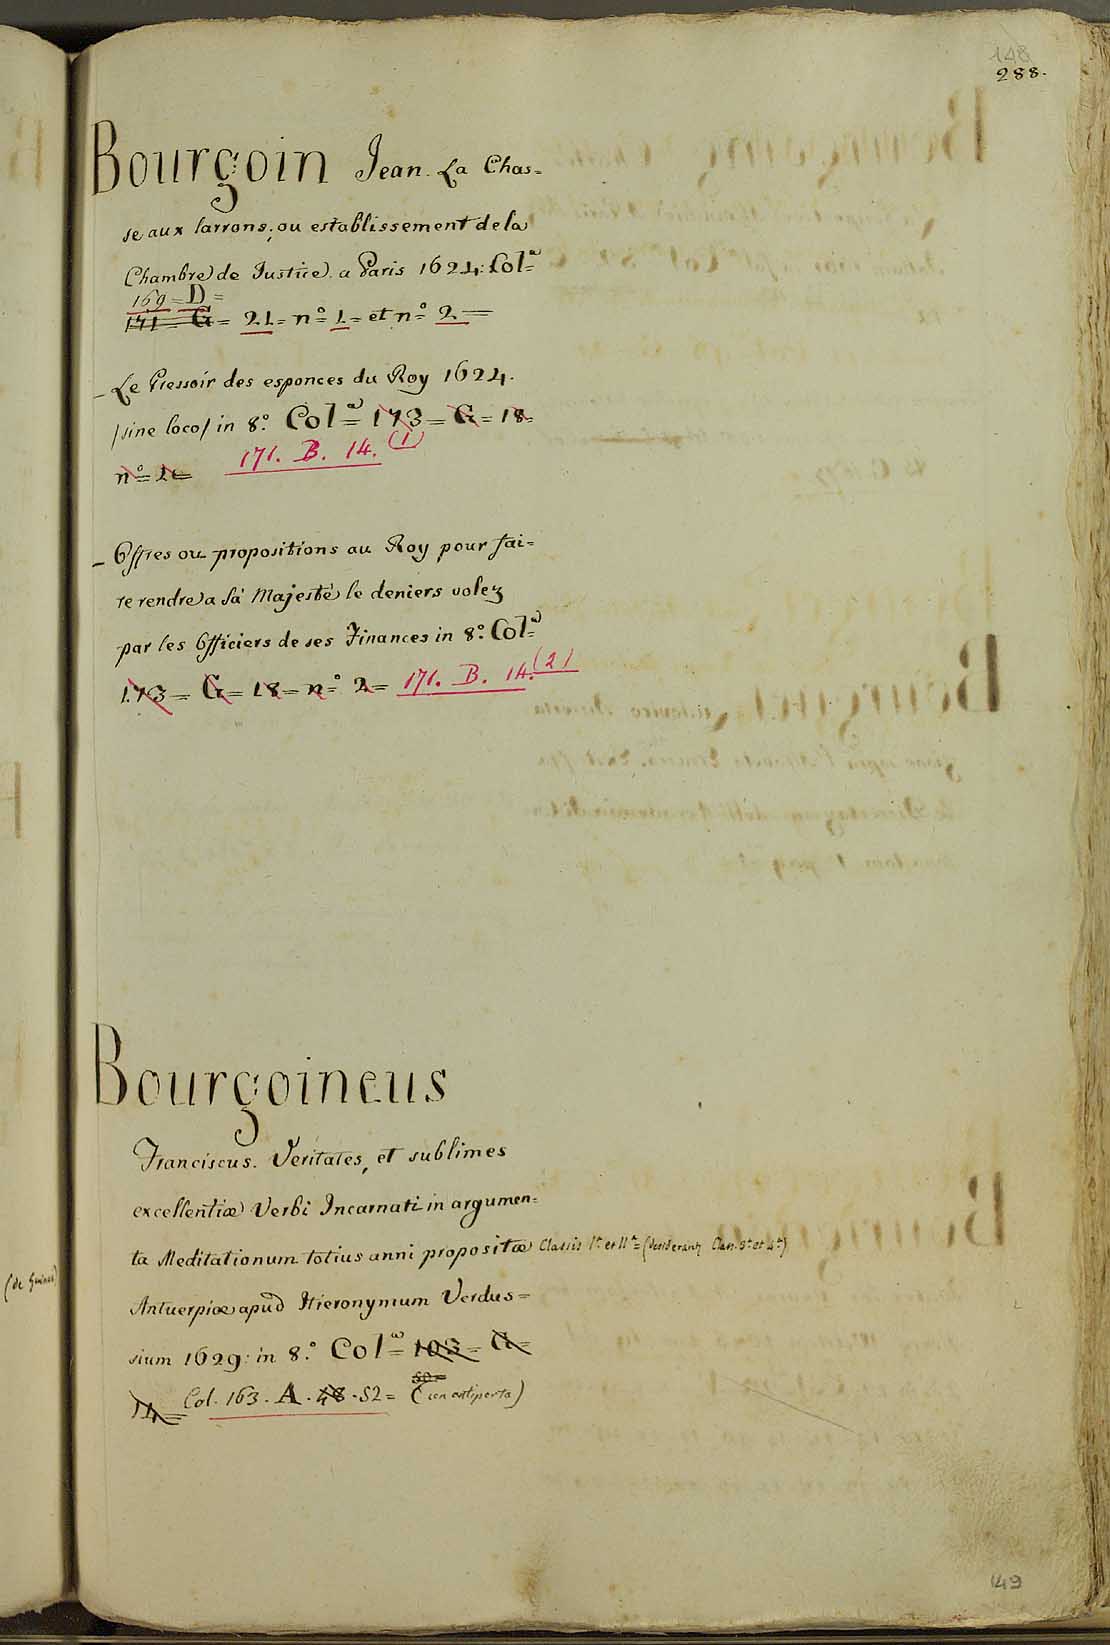 148
288.
Bourgoin Jean. La Chas=
se aux larrons; ou establissement de la
Chambre de Justice. a Paris 1624: Col.ª=
169=D=
171= G= 21= n.º= 1= et n.º= 2=
– Le Pressoir des esponces du Roy 1624.
/sine loco/ in 8.º Col.ª= 173= G= 18=
n.º= 1= 171. B. 14. (1)
– Offres ou propositions au Roy pour fai=
re rendre a Sa Majestè le deniers volez
par les Officiers de ses Finances in 8.º Col.ª=
173= G= 18= n.º 2= 171. B. 14. (2)
Bourgoineus
Franciscus. Veritates, et sublimes
excellentiæ Verbi Incarnati in argumen=
ta Meditationum totius anni propositæ Classis I.ª et II.ª= (desiderantr Clas. 3.ª et 4.ª)
Antuerpiæ apud Hieronymum Verdus=
(de Guinas)
sium 1629: in 8.º Col.ª= 103= G=
14= Col. 163. A. 48. 52= (con antiporta)
50=
149